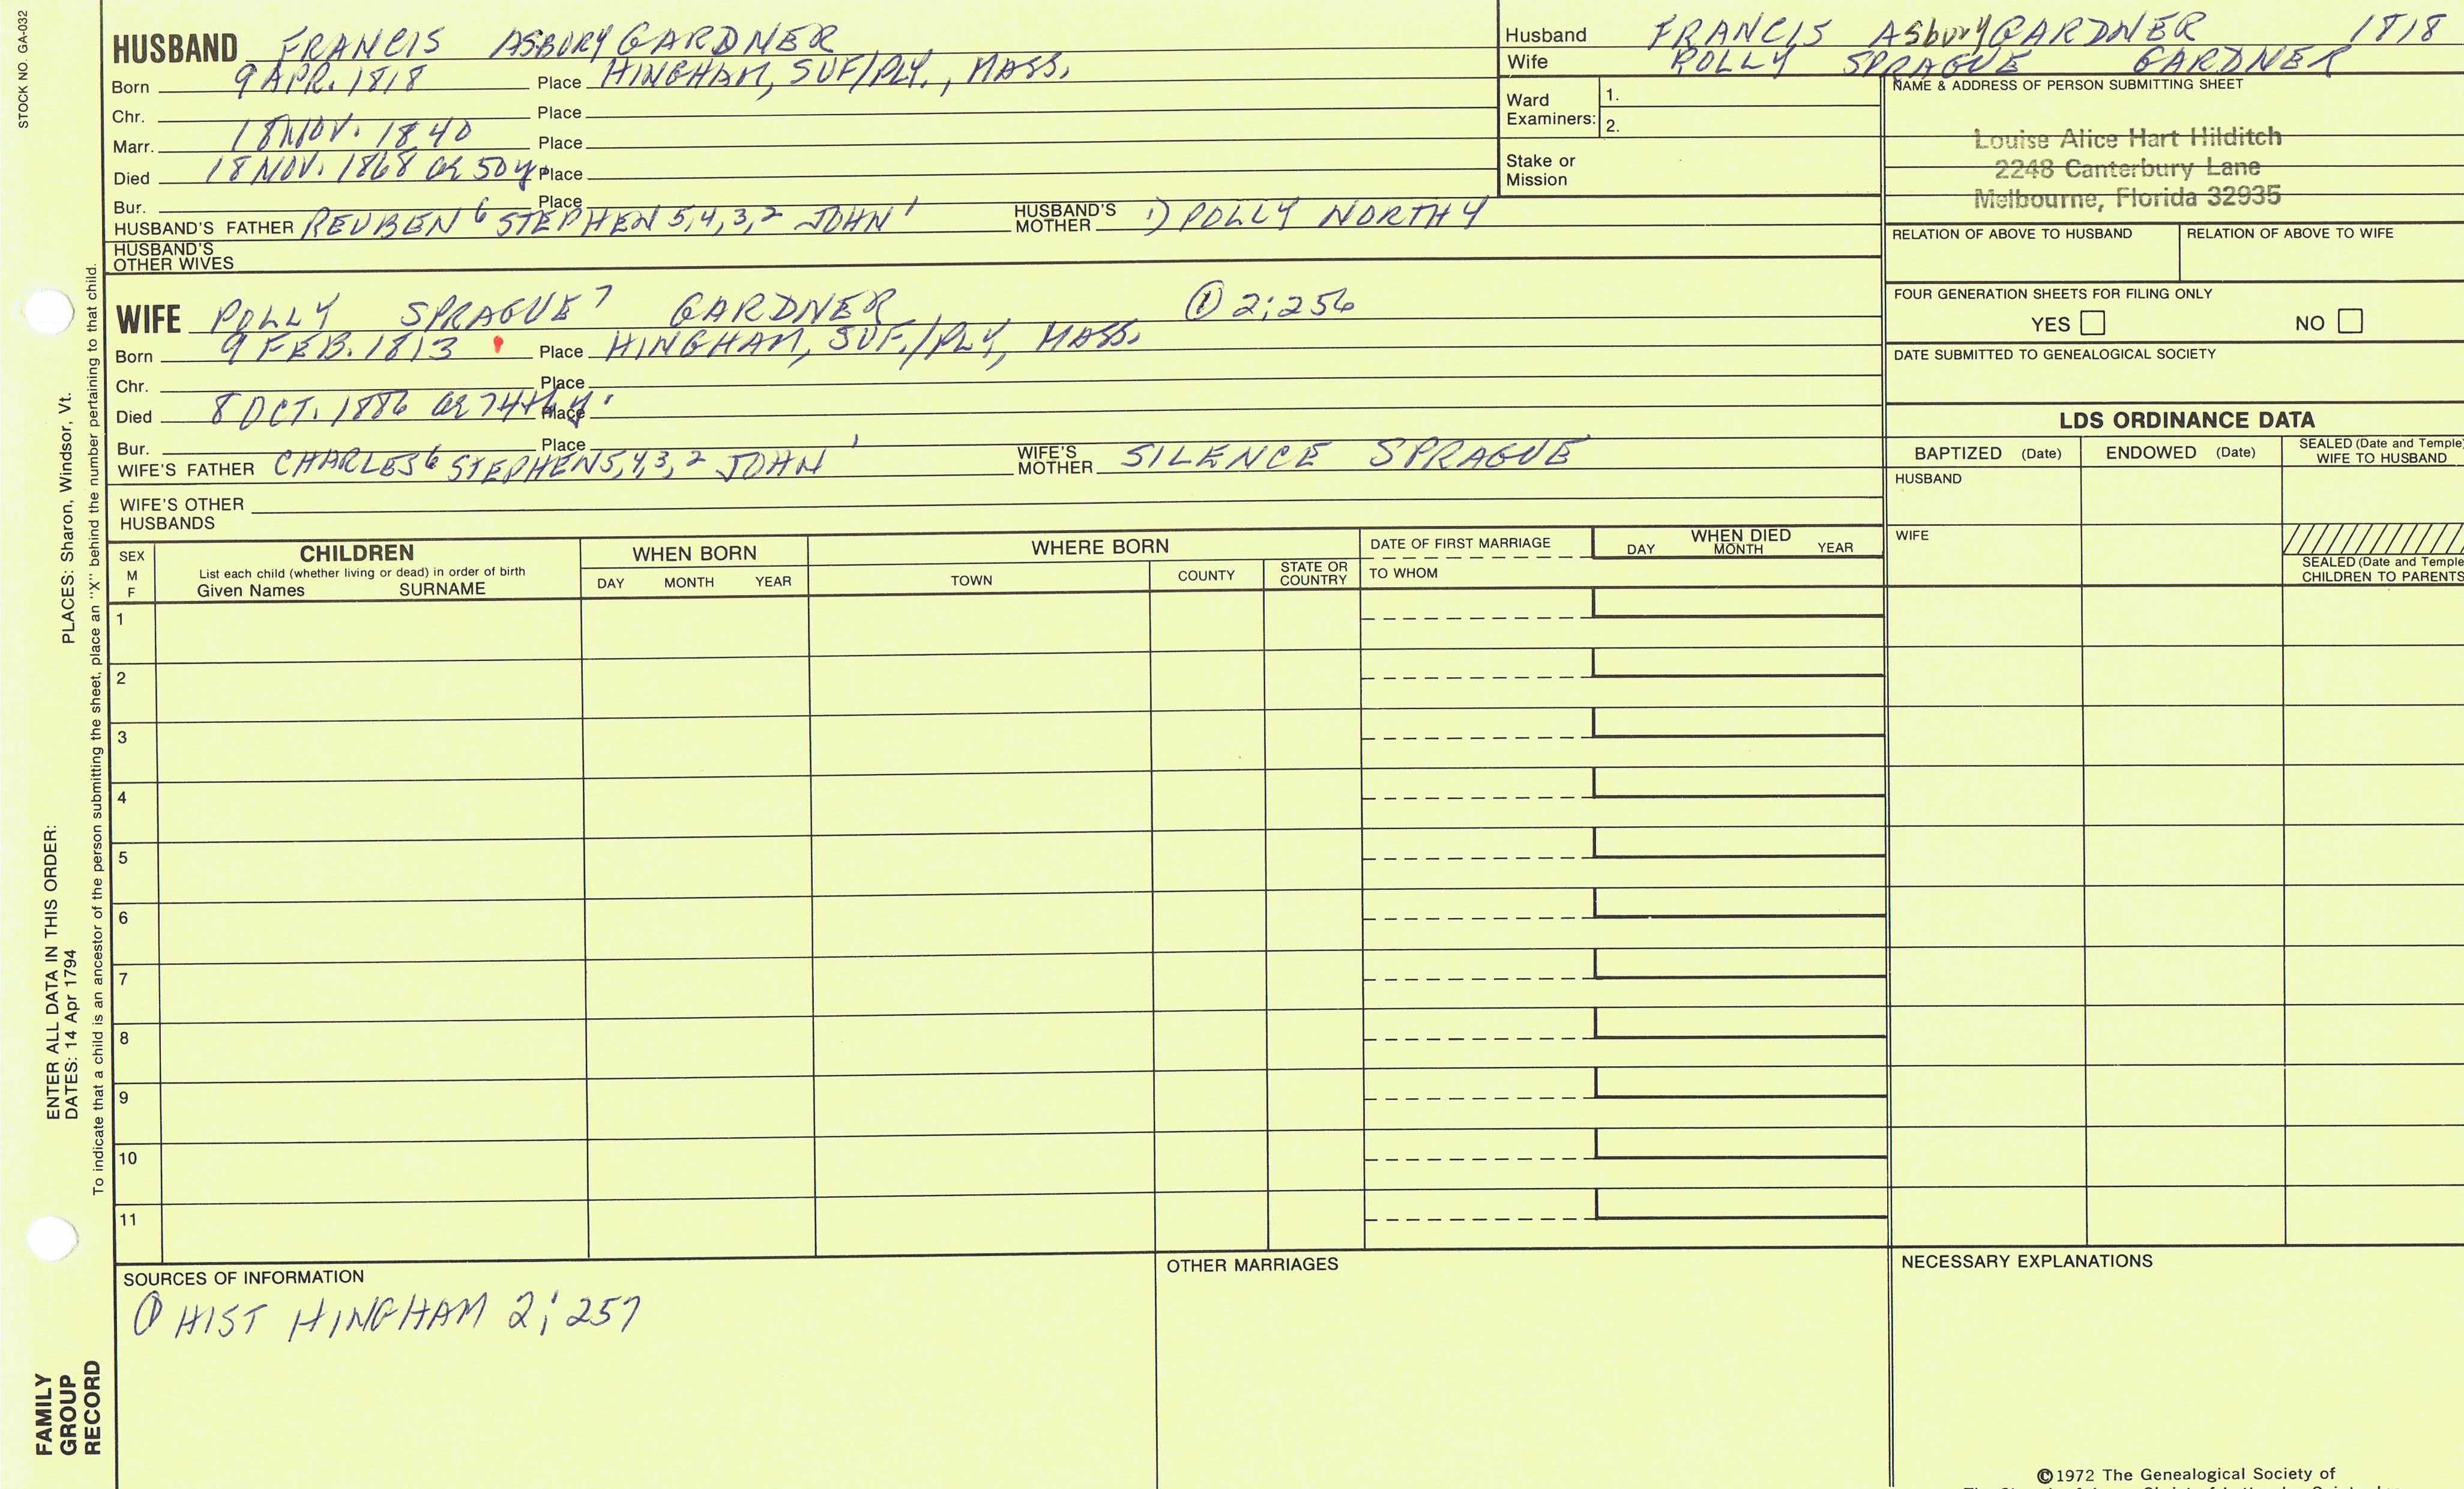 STOCK NO. GA-032
HUSBAND FRANCIS ASBURY GARDNER
Born 9 APR. 1818 Place HINGHAM, SUF/PLY., MASS.
Chr. Place
Marr. 18 NOV. 1840 Place
Died 18 NOV. 1868 ae 50 y Place
Bur. Place
HUSBAND'S FATHER REUBEN 6 STEPHEN 5,4,3,2 JOHN 1 HUSBAND'S MOTHER 1) POLLY NORTHY
HUSBAND'S OTHER WIVES
Husband FRANCIS Asbury GARDNER 1818
Wife POLLY SPRAGUE GARDNER
Ward Examiners: 1.
2.
Stake or Mission
NAME & ADDRESS OF PERSON SUBMITTING SHEET
Louise Alice Hart Hilditch
2248 Canterbury Lane
Melbourne, Florida 32935
RELATION OF ABOVE TO HUSBAND RELATION OF ABOVE TO WIFE
FOUR GENERATION SHEETS FOR FILING ONLY
YES NO
DATE SUBMITTED TO GENEALOGICAL SOCIETY
WIFE POLLY SPRAGUE 7 GARDNER ① 2:256
Born 9 FEB. 1813 Place HINGHAM, SUF./PLY, MASS.
Chr. Place
Died 8 OCT. 1886 ae 74th y. Place
Bur. Place
WIFE'S FATHER CHARLES 6 STEPHEN 5,4,3,2 JOHN 1 WIFE'S MOTHER SILENCE SPRAGUE
WIFE'S OTHER HUSBANDS
LDS ORDINANCE DATA
BAPTIZED (Date) ENDOWED (Date) SEALED (Date and Temple) WIFE TO HUSBAND
HUSBAND
WIFE
SEALED (Date and Temple) CHILDREN TO PARENTS
SEX M F
CHILDREN
List each child (whether living or dead) in order of birth
Given Names SURNAME
WHEN BORN
DAY MONTH YEAR
WHERE BORN
TOWN COUNTY STATE OR COUNTRY
DATE OF FIRST MARRIAGE
TO WHOM
WHEN DIED
DAY MONTH YEAR
1
2
3
4
5
6
7
8
9
10
11
SOURCES OF INFORMATION
① HIST HINGHAM 2:257
OTHER MARRIAGES
NECESSARY EXPLANATIONS
©1972 The Genealogical Society of
FAMILY GROUP RECORD
ENTER ALL DATA IN THIS ORDER:
DATES: 14 Apr 1794 PLACES: Sharon, Windsor, Vt.
To indicate that a child is an ancestor of the person submitting the sheet, place an "X" behind the number pertaining to that child.